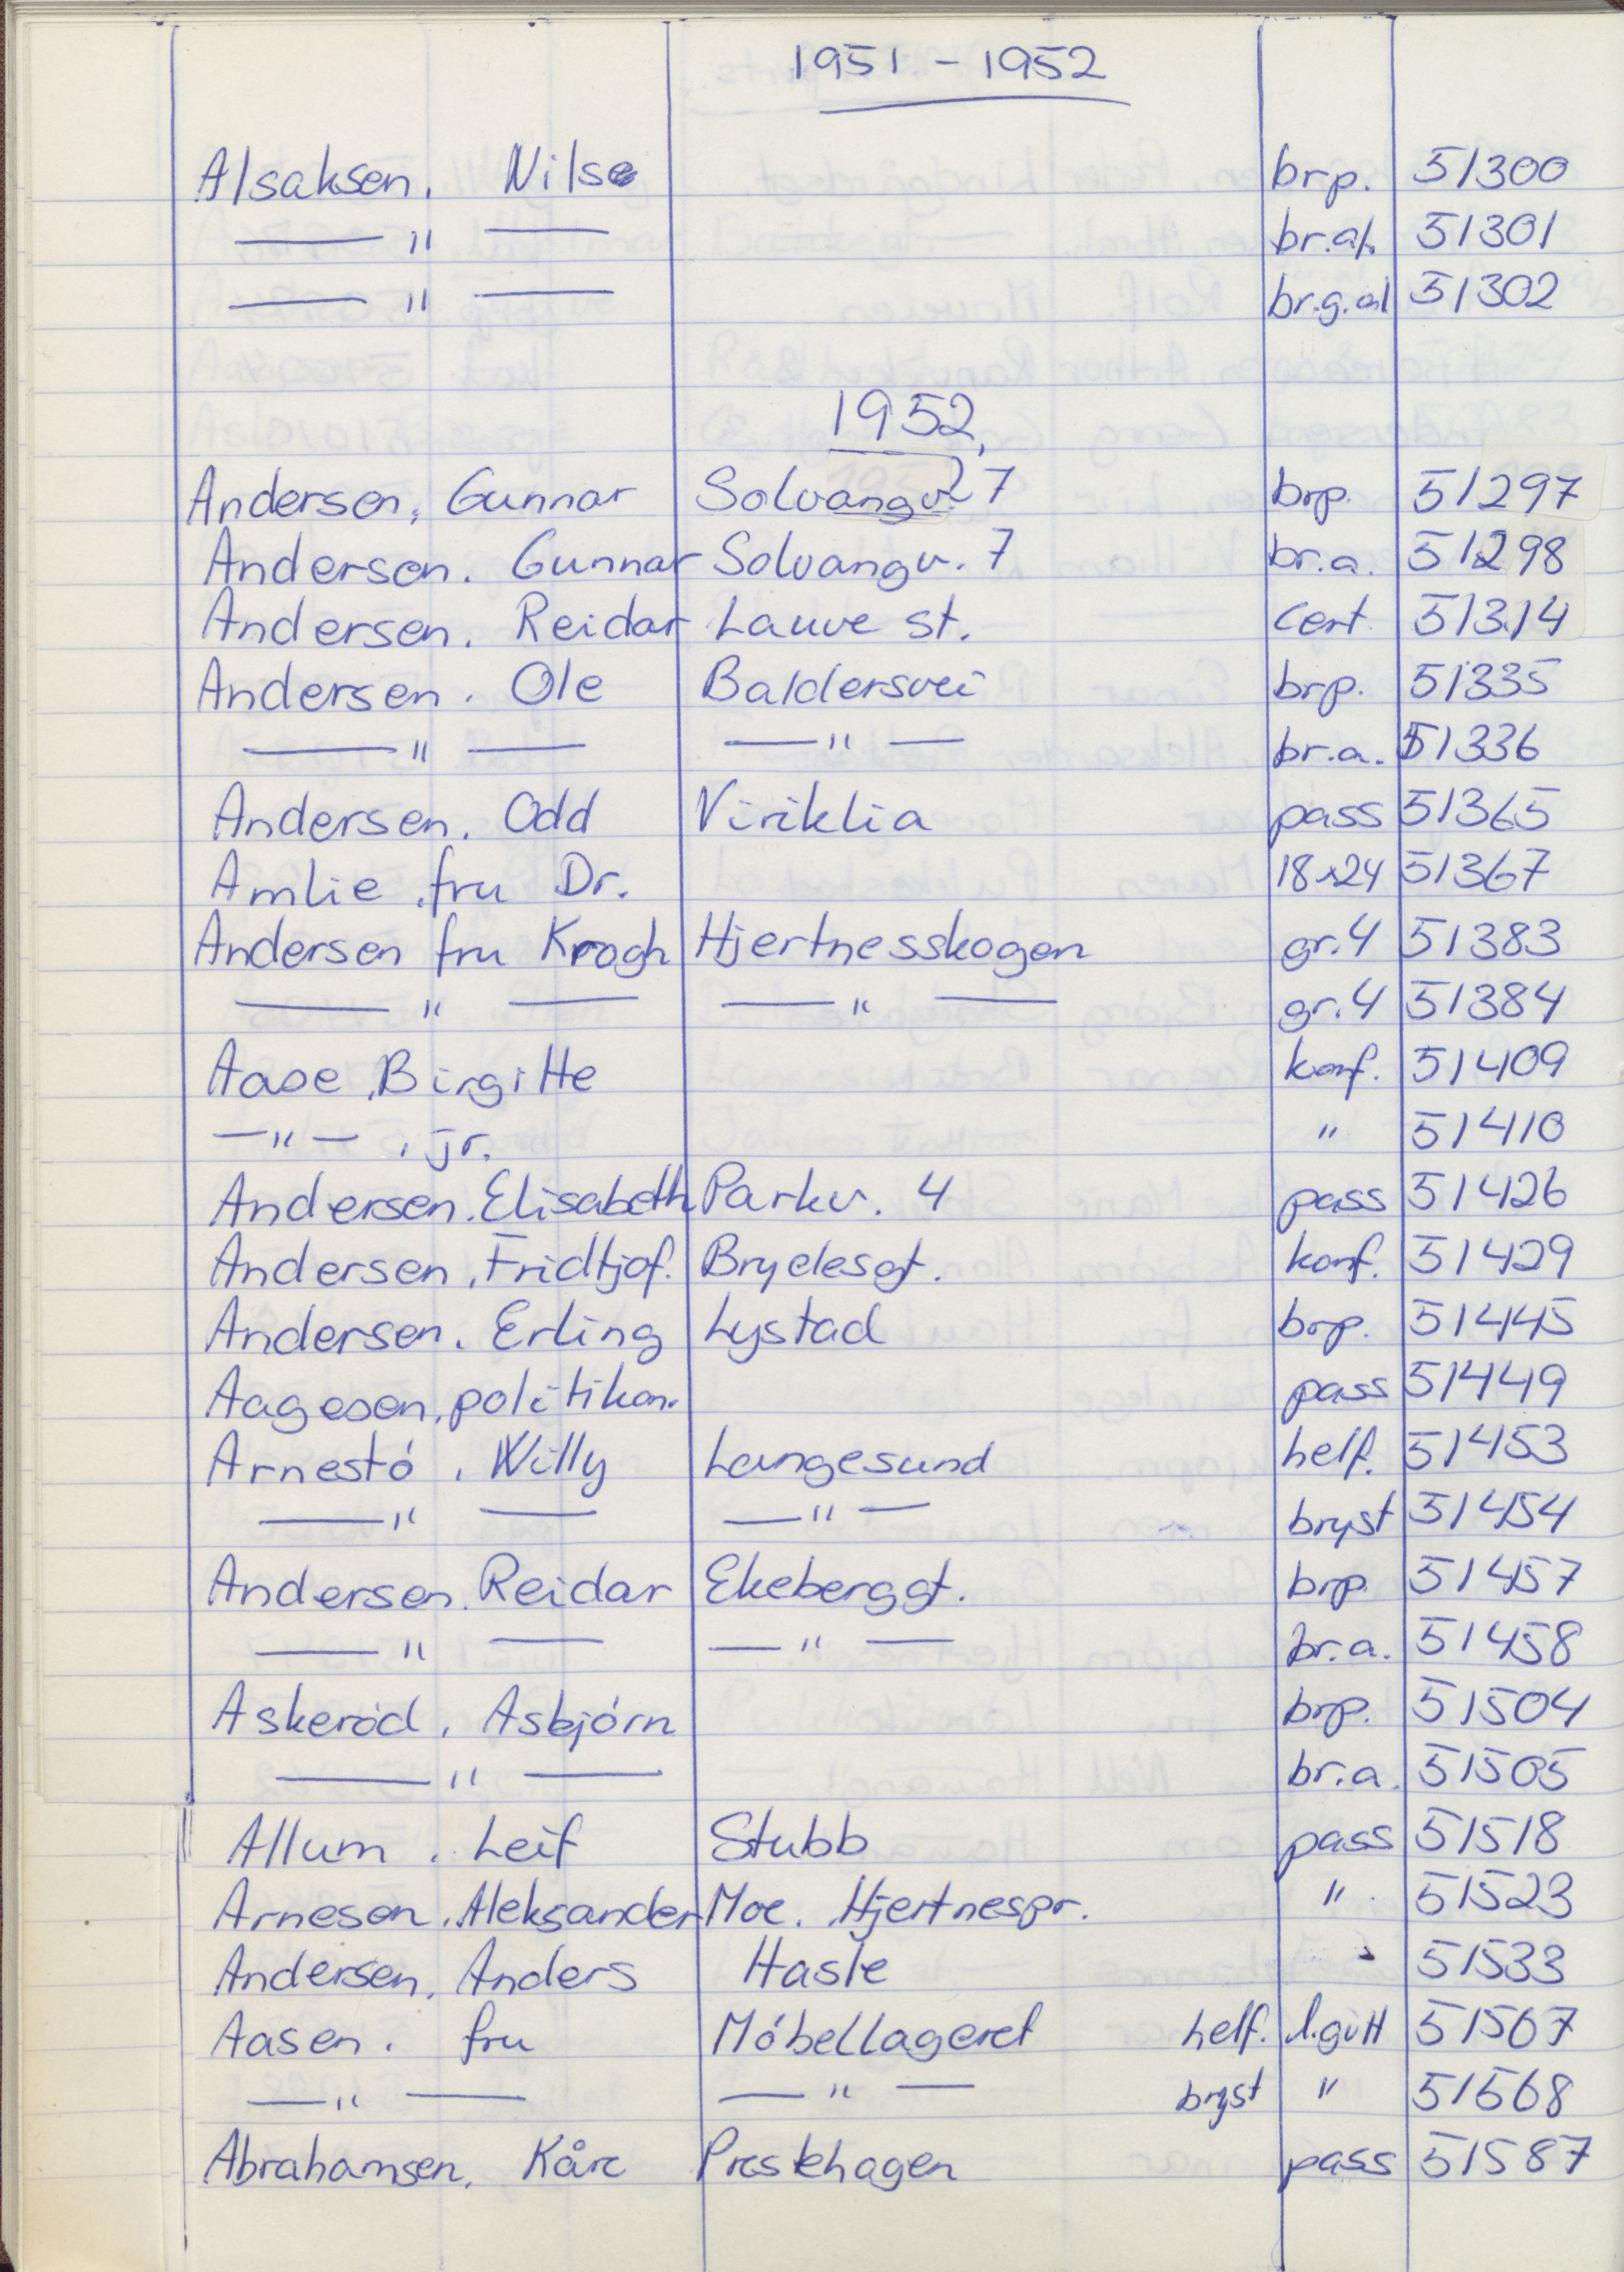 1951 - 1952
Alsaksen. Nilse brp. 51300
—— " —— br.a. 51301
—— " —— br.g.al 51302
1952
Andersen, Gunnar Solvangv. 7 brp. 51297
Andersen. Gunnar Solvangv. 7 br.a. 51298
Andersen. Reidar Lauve st. cert 51314
Andersen. Ole Baldersvei brp. 51335
—— " —— —— " — br.a. 51336
Andersen. Odd Viriklia pass 51365
Amlie, fru Dr. 18x24 51367
Andersen fru Krogh Hjertnesskogen gr.4 51383
—— " —— —— " —— gr.4 51384
Aase, Birgitte konf. 51409
— " — , jr. " 51410
Andersen. Elisabeth Parkv. 4 pass 51426
Andersen, Fridtjof. Brydesgt. konf. 51429
Andersen. Erling Lystad brp. 51445
Aagesen, politikon. pass 51449
Arnestó, Willy Langesund helf. 51453
—— " —— — " — bryst 51454
Andersen. Reidar Ekeberggt. brp. 51457
—— " —— — " — br.a. 51458
Askeród, Asbjórn brp. 51504
—— " —— br.a. 51505
Allum. Leif Stubb pass 51518
Arnesen, Aleksander Moe. Hjertnespr. " 51523
Andersen, Anders Hasle " 51533
Aasen. fru Móbellageret helf. l.gutt 51567
— " —— — " — bryst " 51568
Abrahamsen, Kåre Prestehagen pass 51587